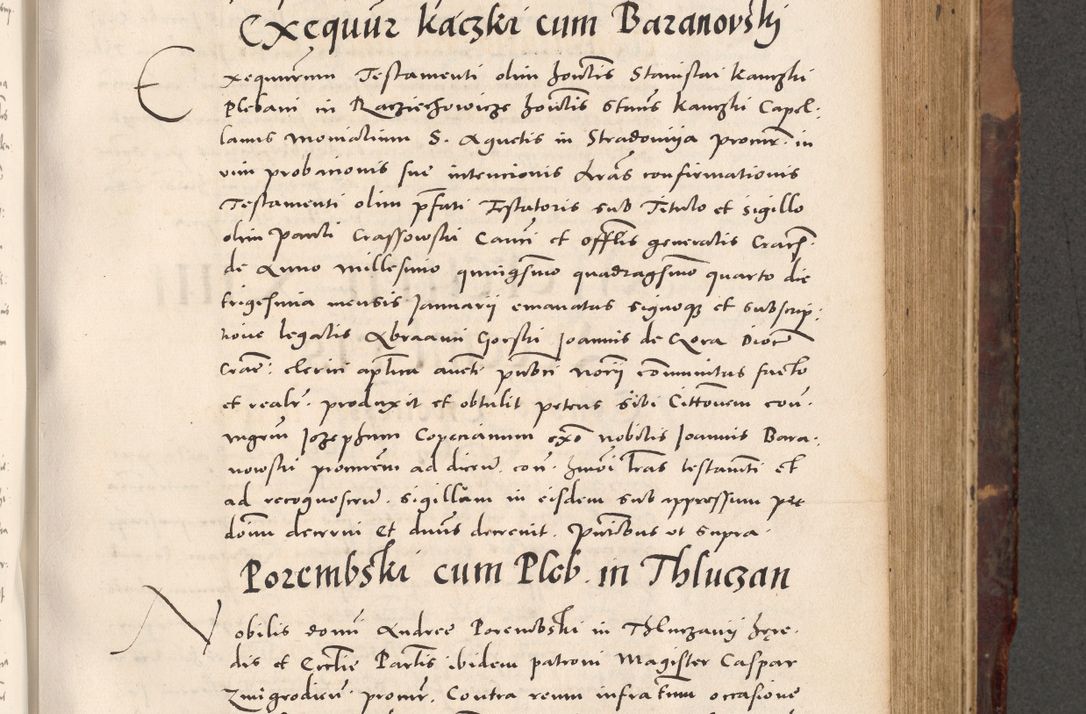 Exequūr Kaczki cum Baranovskj
Exequutorum Testamenti olim honēlis Stanislai Kanczki
Plebani in Racziechowicze honēlis Stanis Kanczki Capel:
lanus monialium S. Agnetis in Stradomya procūr. in
vim probacionis sue intencionis Lrās confirmationis
Testamenti olim pfati Testatoris sub Titulo et sigillo
olim Pauli Crassowski Canci et offlis generalis Crach.
de Anno millesimo quingmo quadragsmo quarto die
trigesima mensis Januarij emanatas signoqz et subscrip:
tione legalis Abraami Gorski Joannis de Gora Dioc
Crac. clerici aplica aucti publici norij communitas facto
et realr. produxit et obtulit petens sibi Cittonem con.
ingrem Jozephum Copecianum exō nobilis Joannis Bara:
nowski procurem ad dicend. con. hmōi lras testamti et
ad recognoscend. sigillum in eisdem sub appressum per
domn decerni et dnus decrevit. Pntibus ut supra.
Porembski cum Pleb. in Thluczan
Nobilis domi Andree Porembski in Thluczanij here.
dis et Ecclie Parlis ibidem patroni Magister Caspar
Zmigrodien. procur. Contra reum infratum occasione